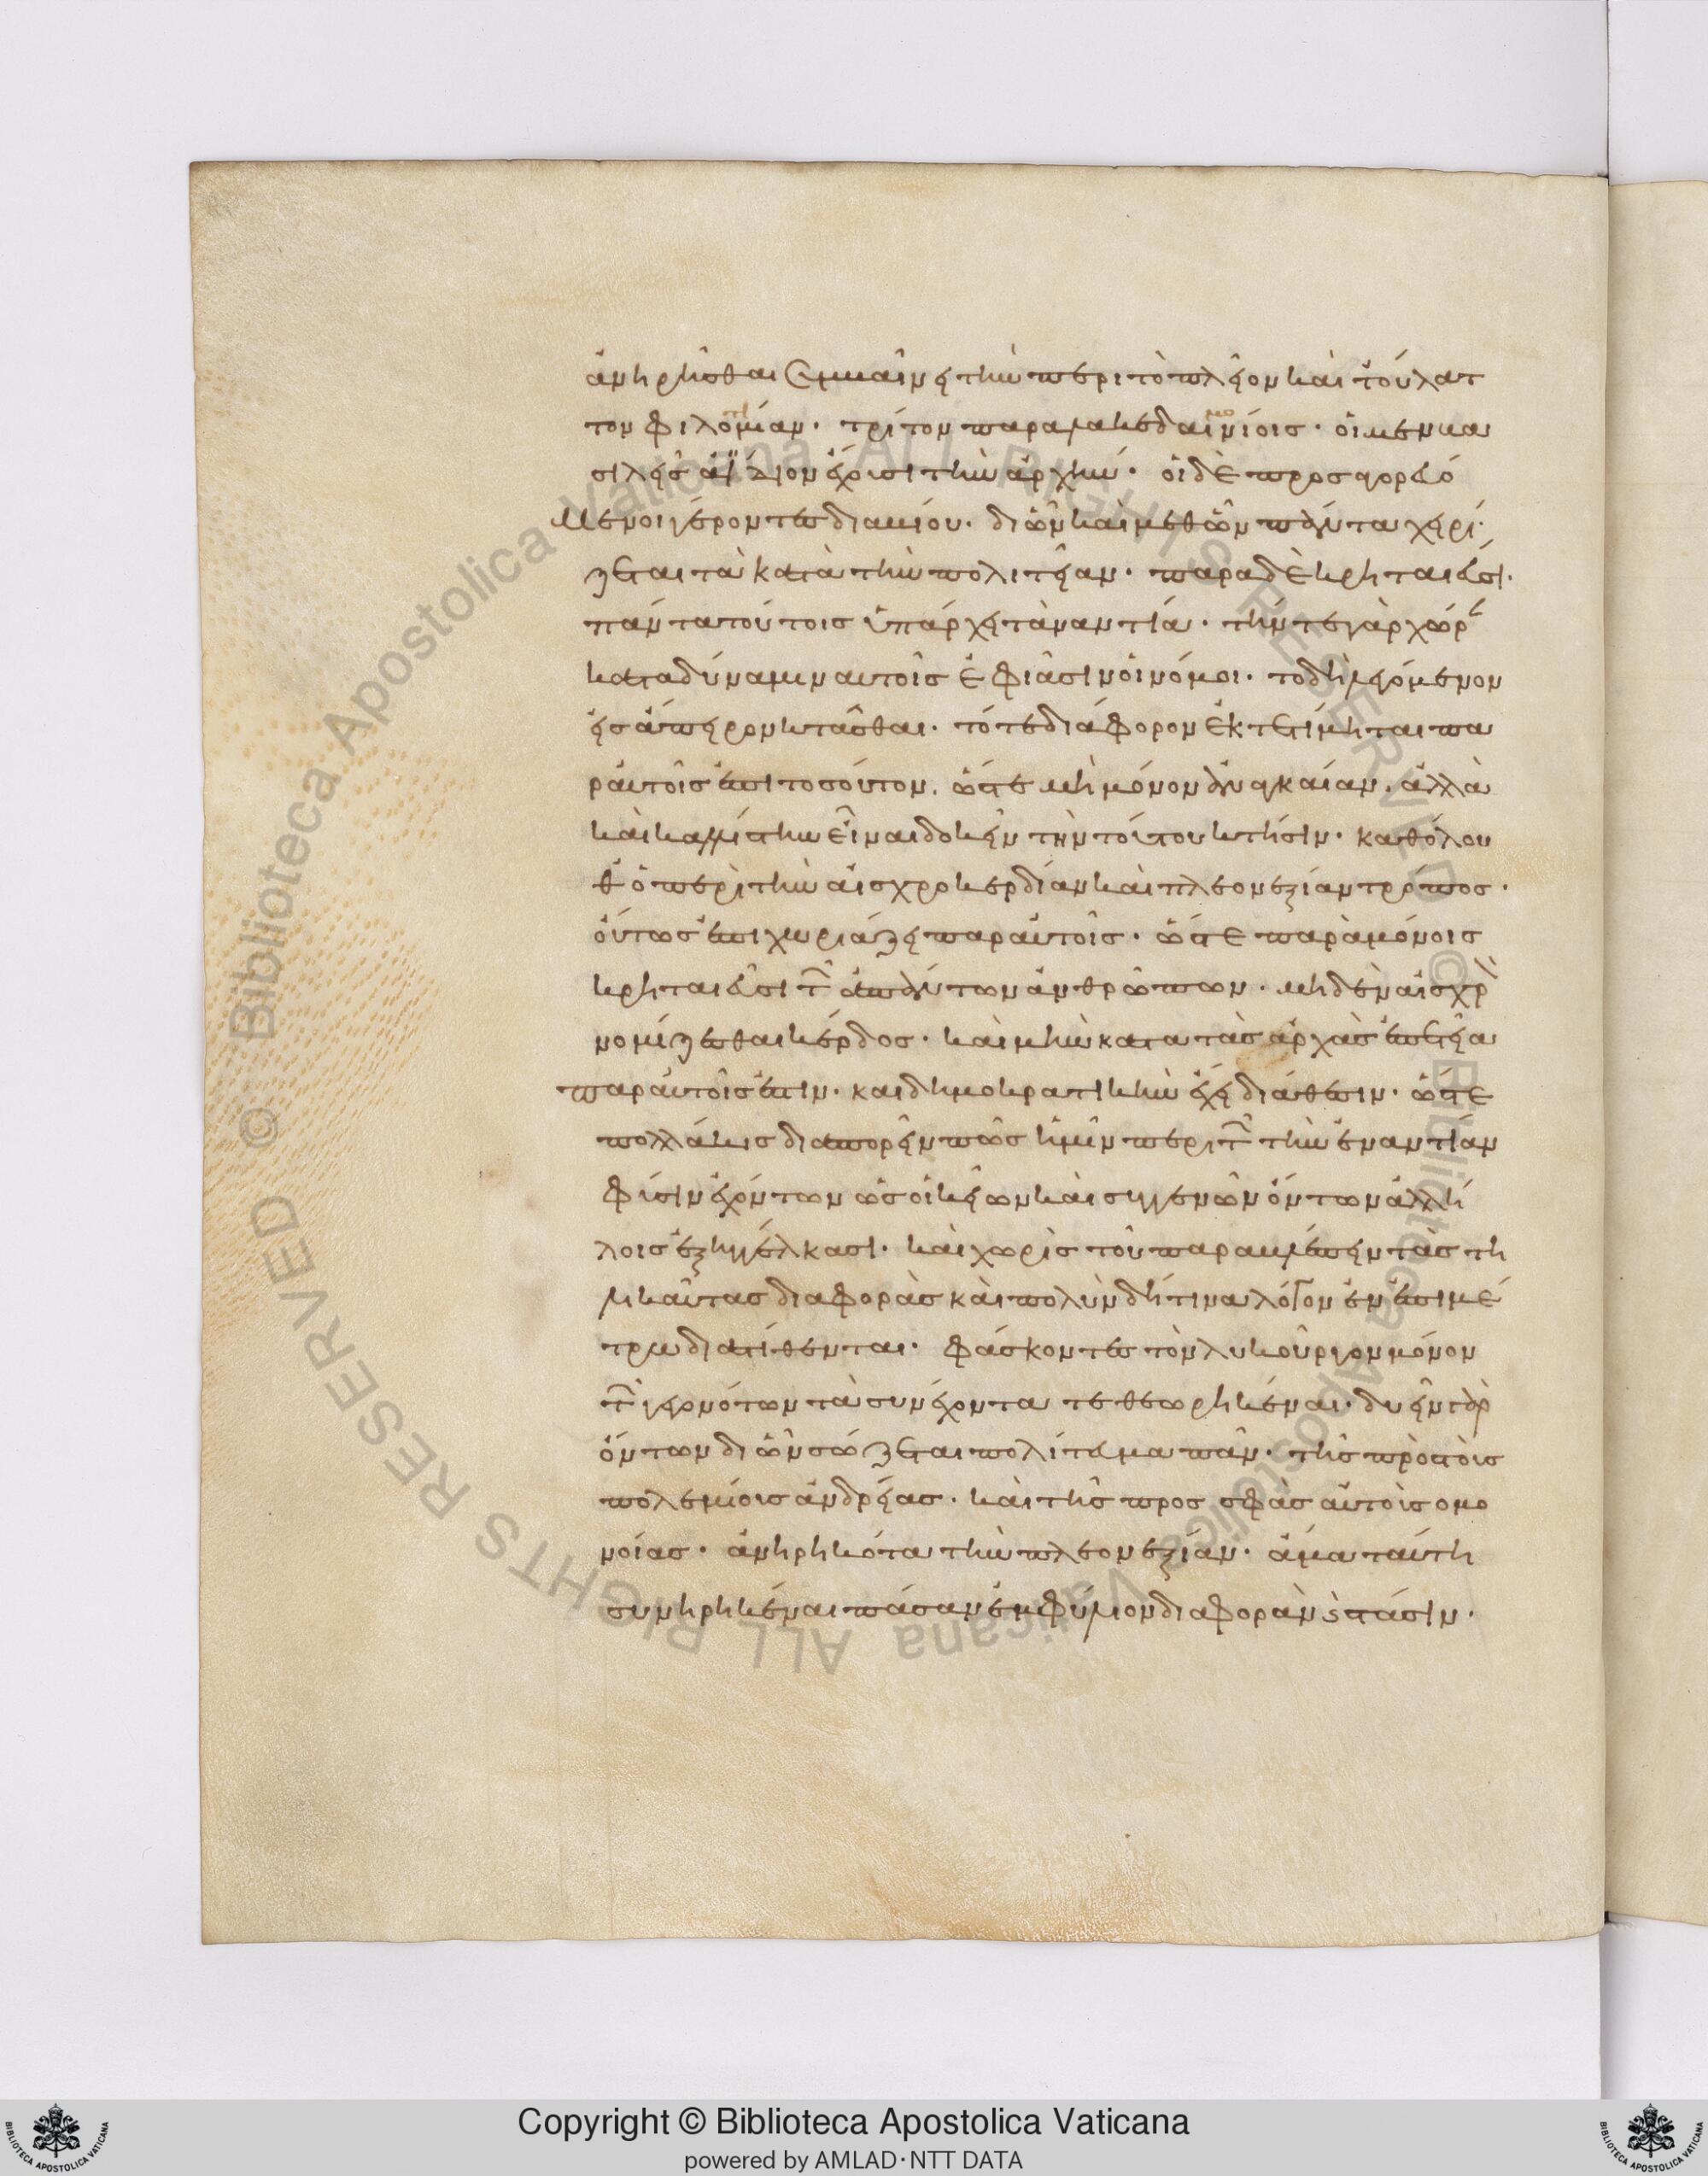 ἀνηιρῆσθαι συμβαίνει τὴν περὶ τὸ πλεῖον καὶ τοὔλατ
τον φιλοτιμίαν· τρίτον παρα λακεδαιμονίοις· οἱ μεν βα
σιλεῖς ἀΐδιον ἔχουσι τὴν ἀρχήν· οἱ δὲ προσαγορευό
μενοι γέροντες δια βίου· δι ὧν καὶ μεθ ὧν πάντα χειρί
ζεται τὰ κατὰ τὴν πολιτείαν· παρα δὲ κρηταιεῦσι·
πάντα τούτοις ὑπάρχει τἀναντία· τήν τε γὰρ χώρ
κατα δύναμιν αυτοῖς ἐφιᾶσιν οἱ νόμοι· το δὴ λεγόμενον
εἰς ἄπειρον κτᾶσθαι· τό τε διάφορον ἐκτετίμηται πα
ρ αὐτοῖς ἐπι τοσοῦτον. ὥστε μὴ μόνον ἀναγκαίαν. ἀλλὰ
καὶ καλλίστην εἶναι δοκεῖν τὴν τούτου κτῆσιν· καθόλου
θ ὁ περὶ τὴν αἰσχροκερδίαν καὶ πλεονεξίαν τρόπος·
οὕτως ἐπιχωριάζει παρ αὐτοῖς· ὥστε παρὰ μόνοις
κρηταιεῦσι τῶν ἁπάντων ἀνθρώπων· μηδὲν αἰσχρὸν
νομίζεσθαι κέρδος· καὶ μὴν κατα τὰς ἀρχὰς ἐπετεία
παρ αὐτοῖς ἐστιν· και δημοκρατικὴν ἔχει διάθεσιν· ὥστε
πολλάκις διαπορεῖν πῶς ἡμῖν περὶ τῶν τὴν ἐναντίαν
φύσιν ἐχόντων ὡς οἰκείων καὶ συγγενῶν ὄντων ἀλλή
λοις ἐξηγγέλκασι· καὶ χωρὶς τοῦ παραβλέπειν τὰς τη
λικαύτας διαφορὰς καὶ πολὺν δή τινα λόγον ἐν ἐπιμέ
τρω διατίθενται· φάσκοντες τὸν λυκοῦργον μόνον
τῶν γεγονότων τὰ συνέχοντα τεθεωρηκέναι· δυεῖν γὰρ
ὄντων δι ὧν σώζεται πολίτευμα πᾶν· τῆς πρὸς τοὺς
πολεμίους ἀνδρείας· καὶ τῆς προς σφᾶς αὐτοὺς ομο
νοίας· ἀνηρηκότα τὴν πλεονεξίαν· ἅμα ταύτη
συνηρηκέναι πᾶσαν ἐμφύλιον διαφορὰν καὶ στάσιν·
Copyright © Biblioteca Apostolica Vaticana
powered by AMLAD·NTT DATA